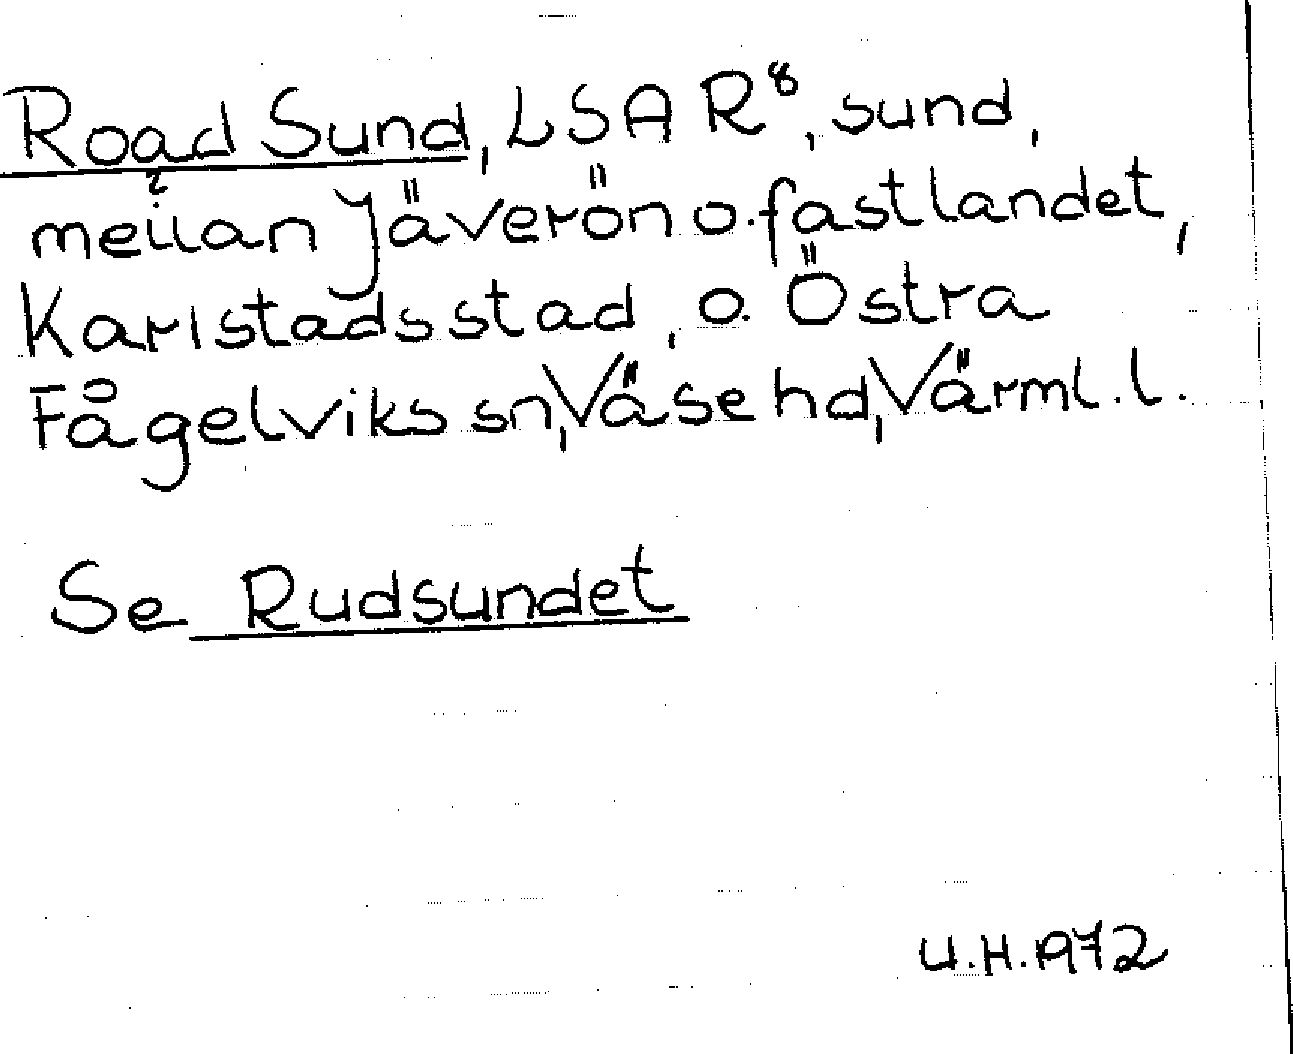 Road Sund, LSA R⁸, sund,
mellan Jäverön o. fastlandet,
Karlstads stad, o. Östra
Fågelviks sn, Väse hd, Värml. l.
Se Rudsundet
U.H. 1972